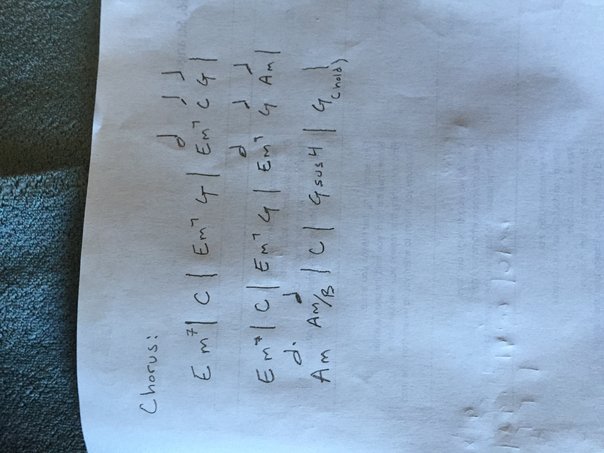 Chorus:
Em⁷ | C | Em⁷ G | Em⁷ C G |
Em⁷ | C | Em⁷ G | Em⁷ G Am |
Am Am/B | C | Gsus4 | G (hold) |